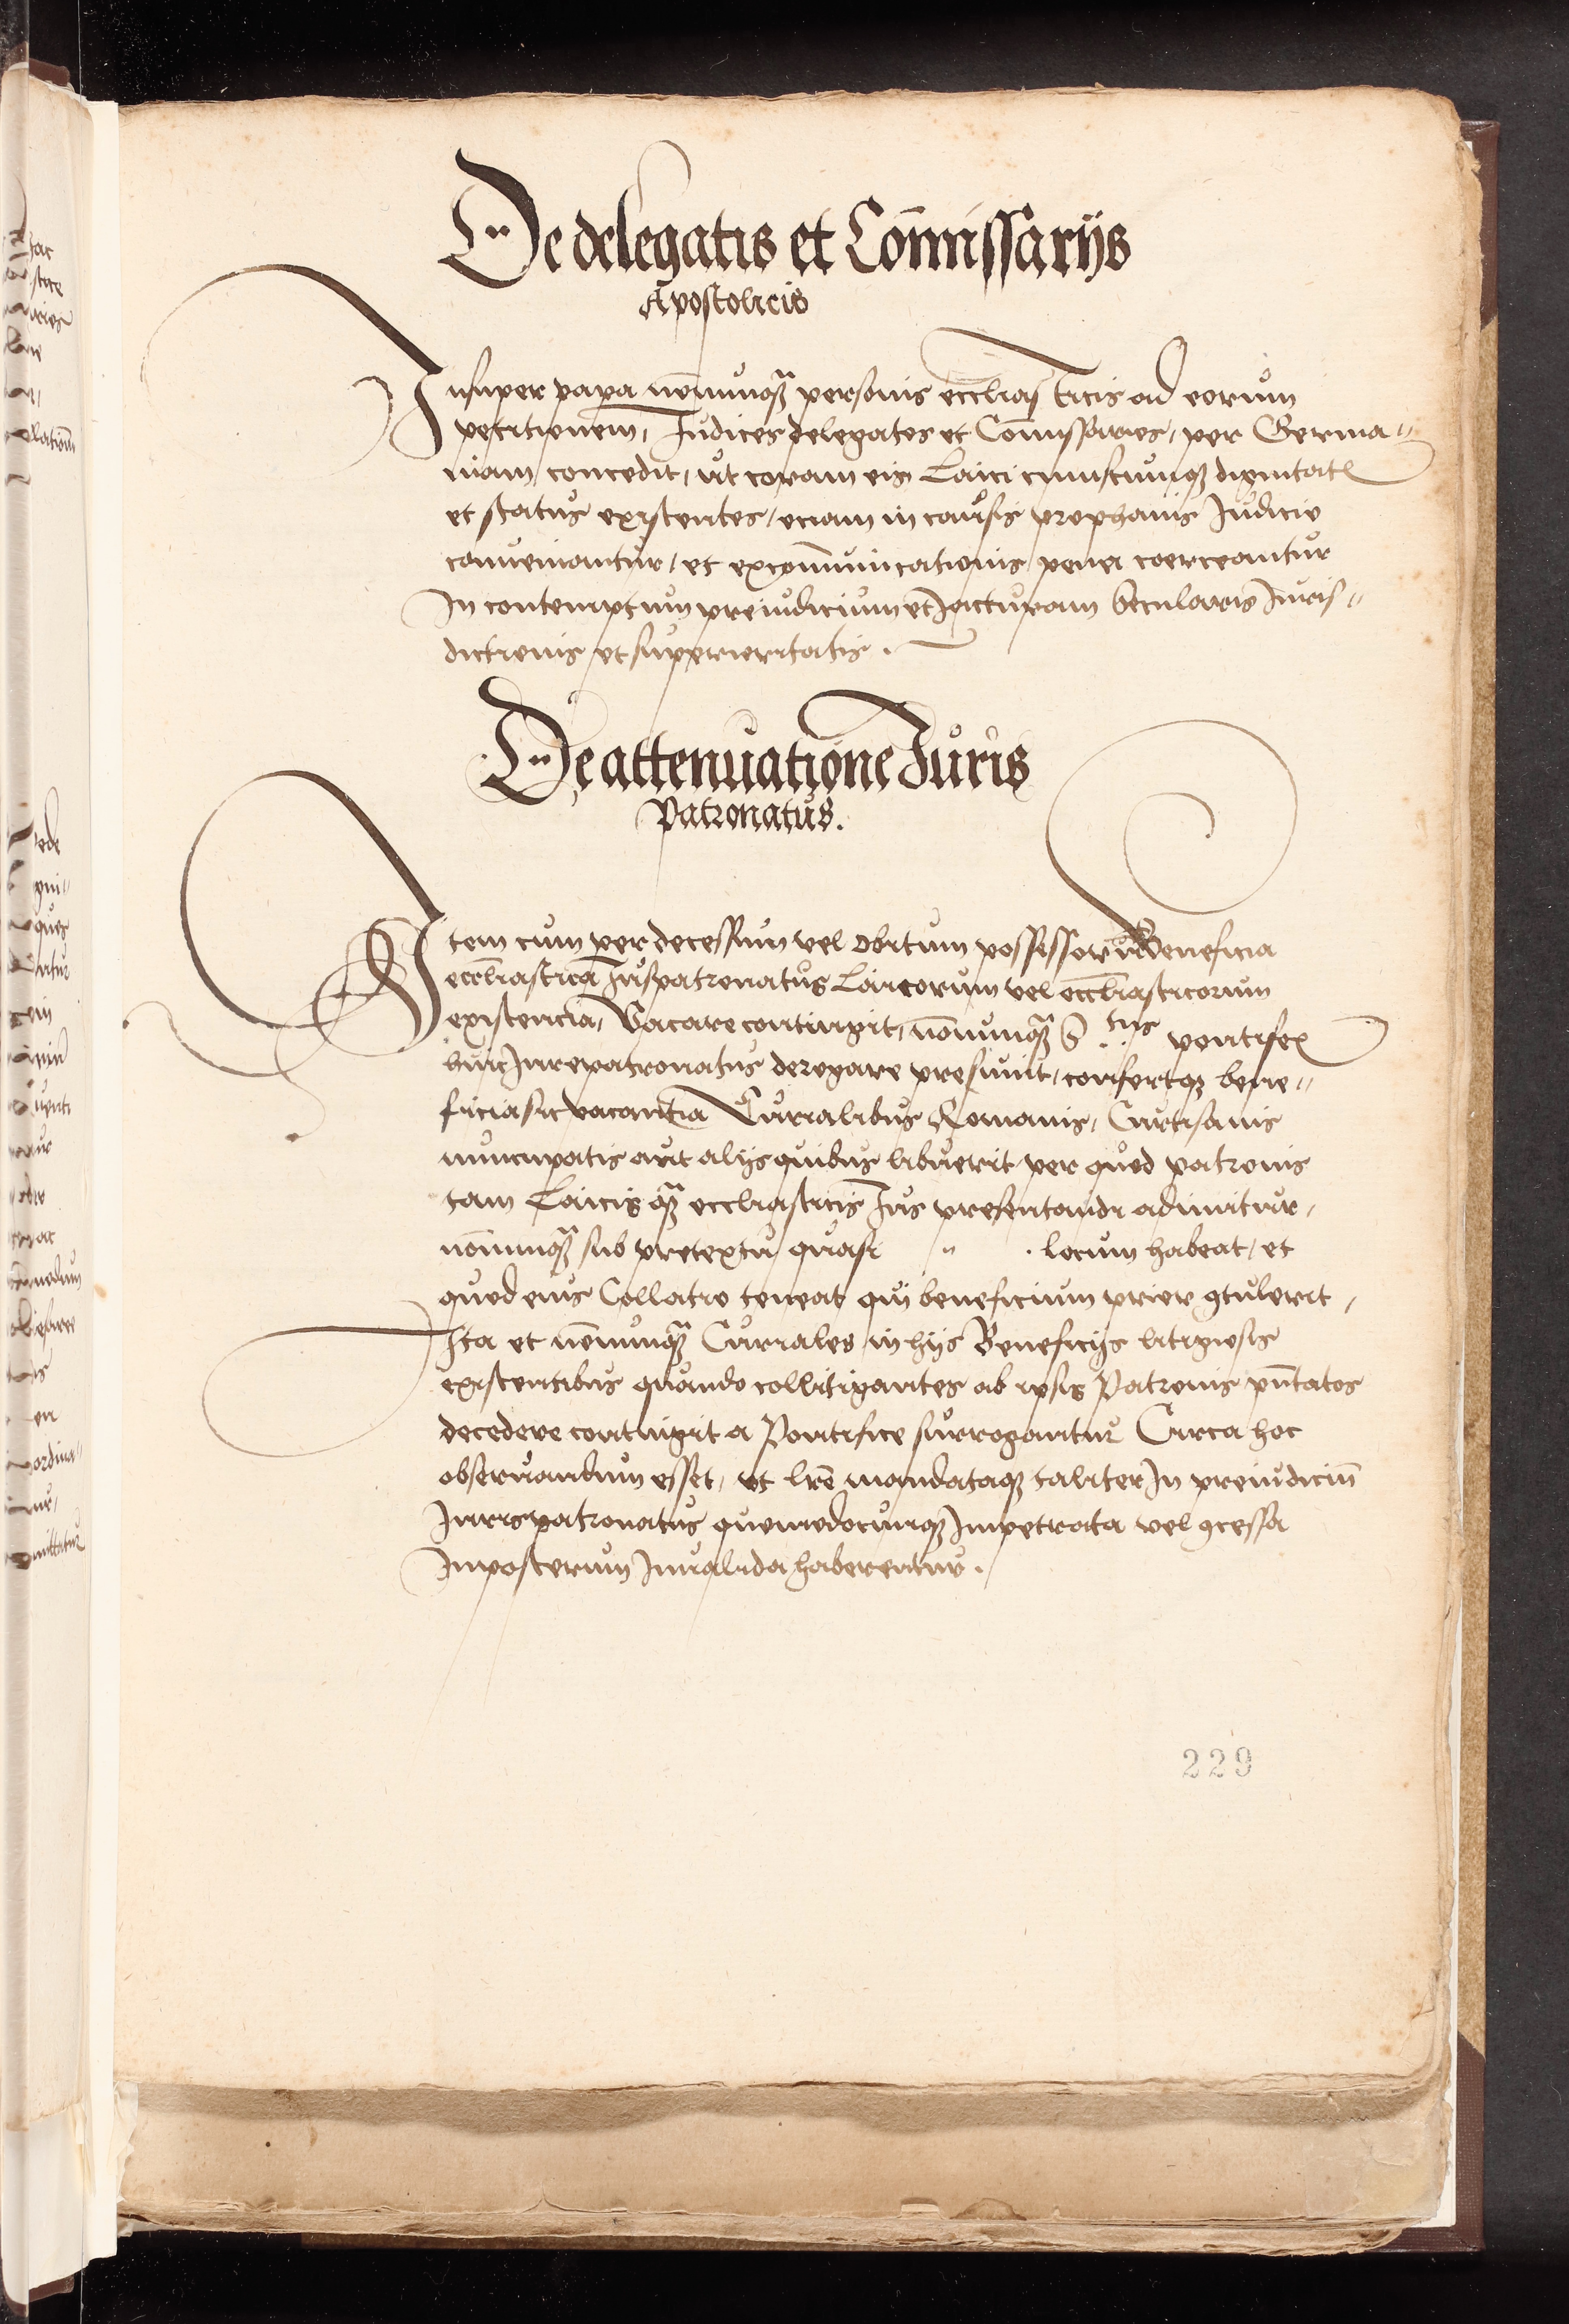 De delegatis et Com̄issarijs
Apostolicis
Insuper papa nōnunq̃ personis eccl̄iasticis ad eorum
petitionem, Iudices delegatos et Com̄issarios, per Germa-
niam concedit, ut coram eis Laici cuiuscunq; dignitatis
et status existentes, eciam in causis prophanis Iudicio
conueniantur, et excom̄unicationis pena coerceantur
In contemptum preiudicium et Iacturam secularis Iuris-
dictionis et superioritatis.
De attenuatione Iuris
Patronatus.
Item cum per decessum vel obitum possessorū Beneficia
eccl̄iastica Iuspatronatus Laicorum vel eccl̄iasticorum
existencia, Vacare contingit, nōnunq̃ S.tus pontifex
huic Iurepatronatus derogare presumit, confertq; bene-
ficia sic vacantia Curialibus Romanis, Curtisanis
nuncupatis aut alijs quibus libuerit per quod patronis
tam Laicis q̃ eccl̄iasticis Ius presentandi adimitur,
nōnunq̃ sub pretextu quasi " . locum habeat, et
quod eius Collatio teneat qui beneficium prior ꝯtulerit,
Ita et nōnunq̃ Curiales in hijs Beneficijs litigiosis
existentibus quando collitigantes ab ipsis Patronis pn̄tatos
decedere contingit a Pontifice surrogantur Circa hoc
obseruandum esset, ut lr̄e mandataq; taliter In preiudiciū
Iurispatronatus quomodocunq; Impetrata vel ꝯcessa
Inposterum Inualida haberentur.
229